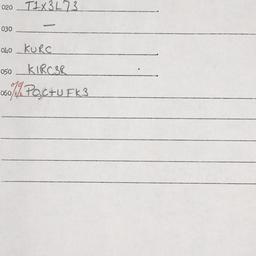 020 T1X3L73
030 —
040 KURC
050 KIRC3R
060 PO,C+UFK3